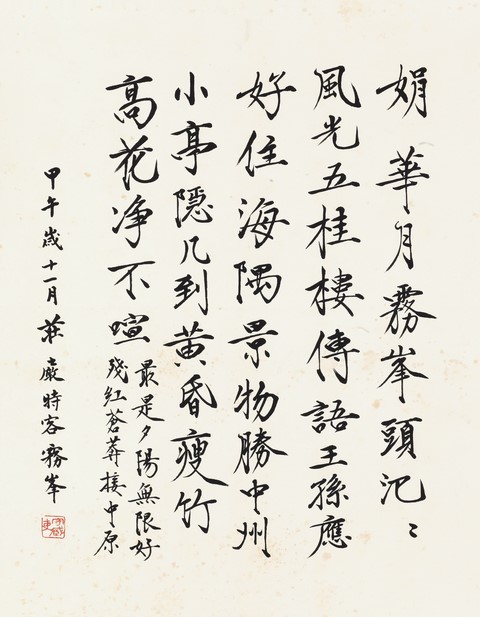 娟華月霧峯頭氾〻
風光五桂樓傳語王孫應
好住海隅景物勝中州
小亭隱几到黃昏瘦竹
高花净不喧
最是夕陽無限好
殘紅蒼莽接中原
甲午歲十一月莊嚴時客霧峯